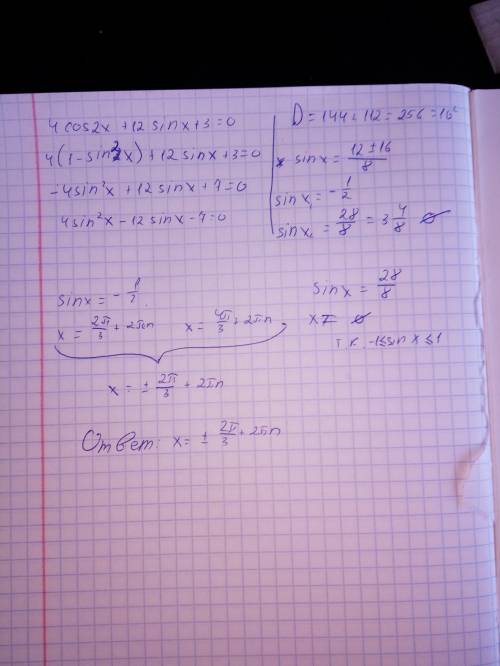 4 cos2x + 12 sinx + 3 = 0
4(1 - sin²x) + 12 sinx + 3 = 0
-4sin²x + 12 sinx + 7 = 0
4sin²x - 12 sinx - 7 = 0
D = 144 + 112 = 256 = 16²
sinx = (12 ± 16)/8
sinx₁ = -1/2
sinx₂ = 28/8 = 3 4/8 ∅
sinx = -1/2.
x = 2π/3 + 2πn x = 4π/3 + 2πn
x = ± 2π/3 + 2πn
sinx = 28/8
x = ∅
т.к. -1≤sin x≤1
Ответ: x = ± 2π/3 + 2πn